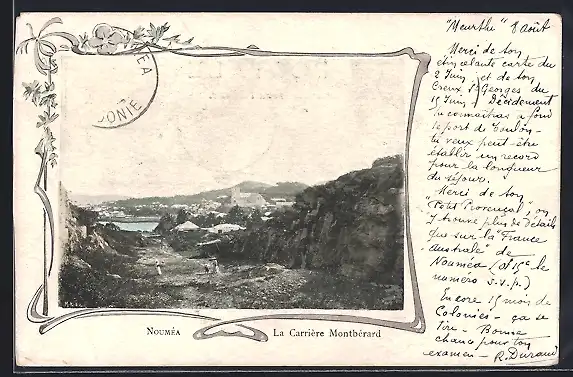 "Meurthe" 8 Août
Merci de ton
étincelante carte du
2 Juin, et de ton
Creux St Georges du
15 Juin. Décidément
tu connaitras à fond
le port de Toulon -
tu veux peut-être
établir un record
pour la longueur
du séjour.
Merci de ton
"Petit Provençal", on
y trouve plus de détails
que sur la "France
australe" de
Nouméa (0f15c le
numéro s.v.p.)
Encore 15 mois de
Colonies - ça se
tire - Bonne
chance pour ton
examen - R. Durand
NOUMÉA
LA CARRIÈRE MONTBÉRARD